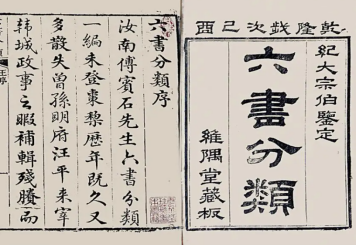 乾隆歲次己酉
紀大宗伯鑒定
六書分類
維隅堂藏板
六書分類序
汝南傅賓石先生六書分類
一編未登棗黎歷年既久又
多散失曾孫明府汪平來宰
韓城政事之暇補輯殘賸而